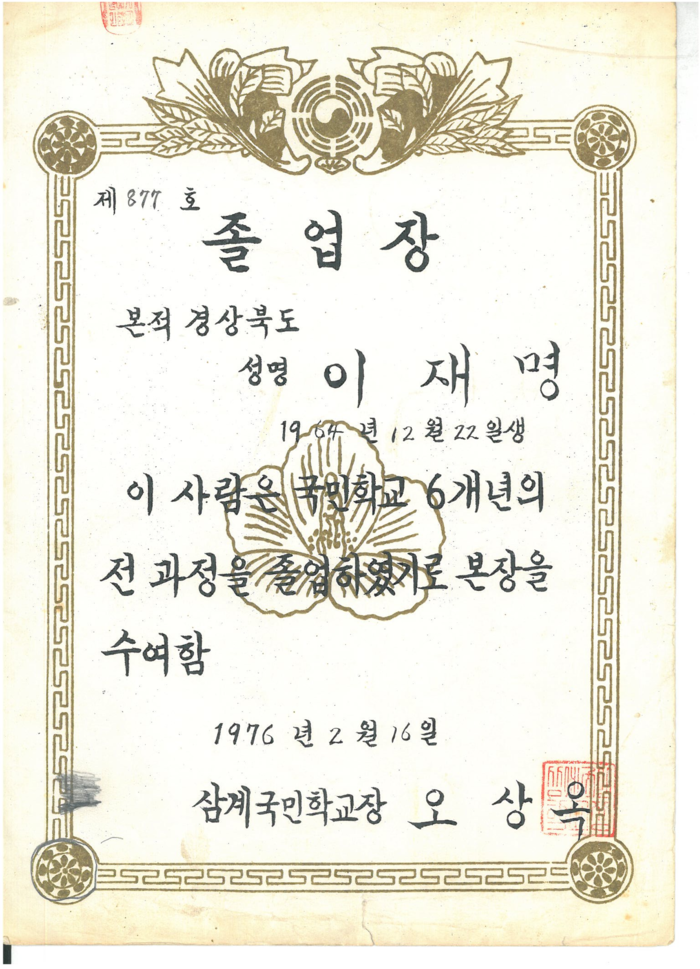 제 877 호
졸업장
본적 경상북도
성명 이재명
1964년 12월 22일생
이 사람은 국민학교 6개년의
전 과정을 졸업하였기로 본장을
수여함
1976년 2월 16일
삼계국민학교장 오상옥